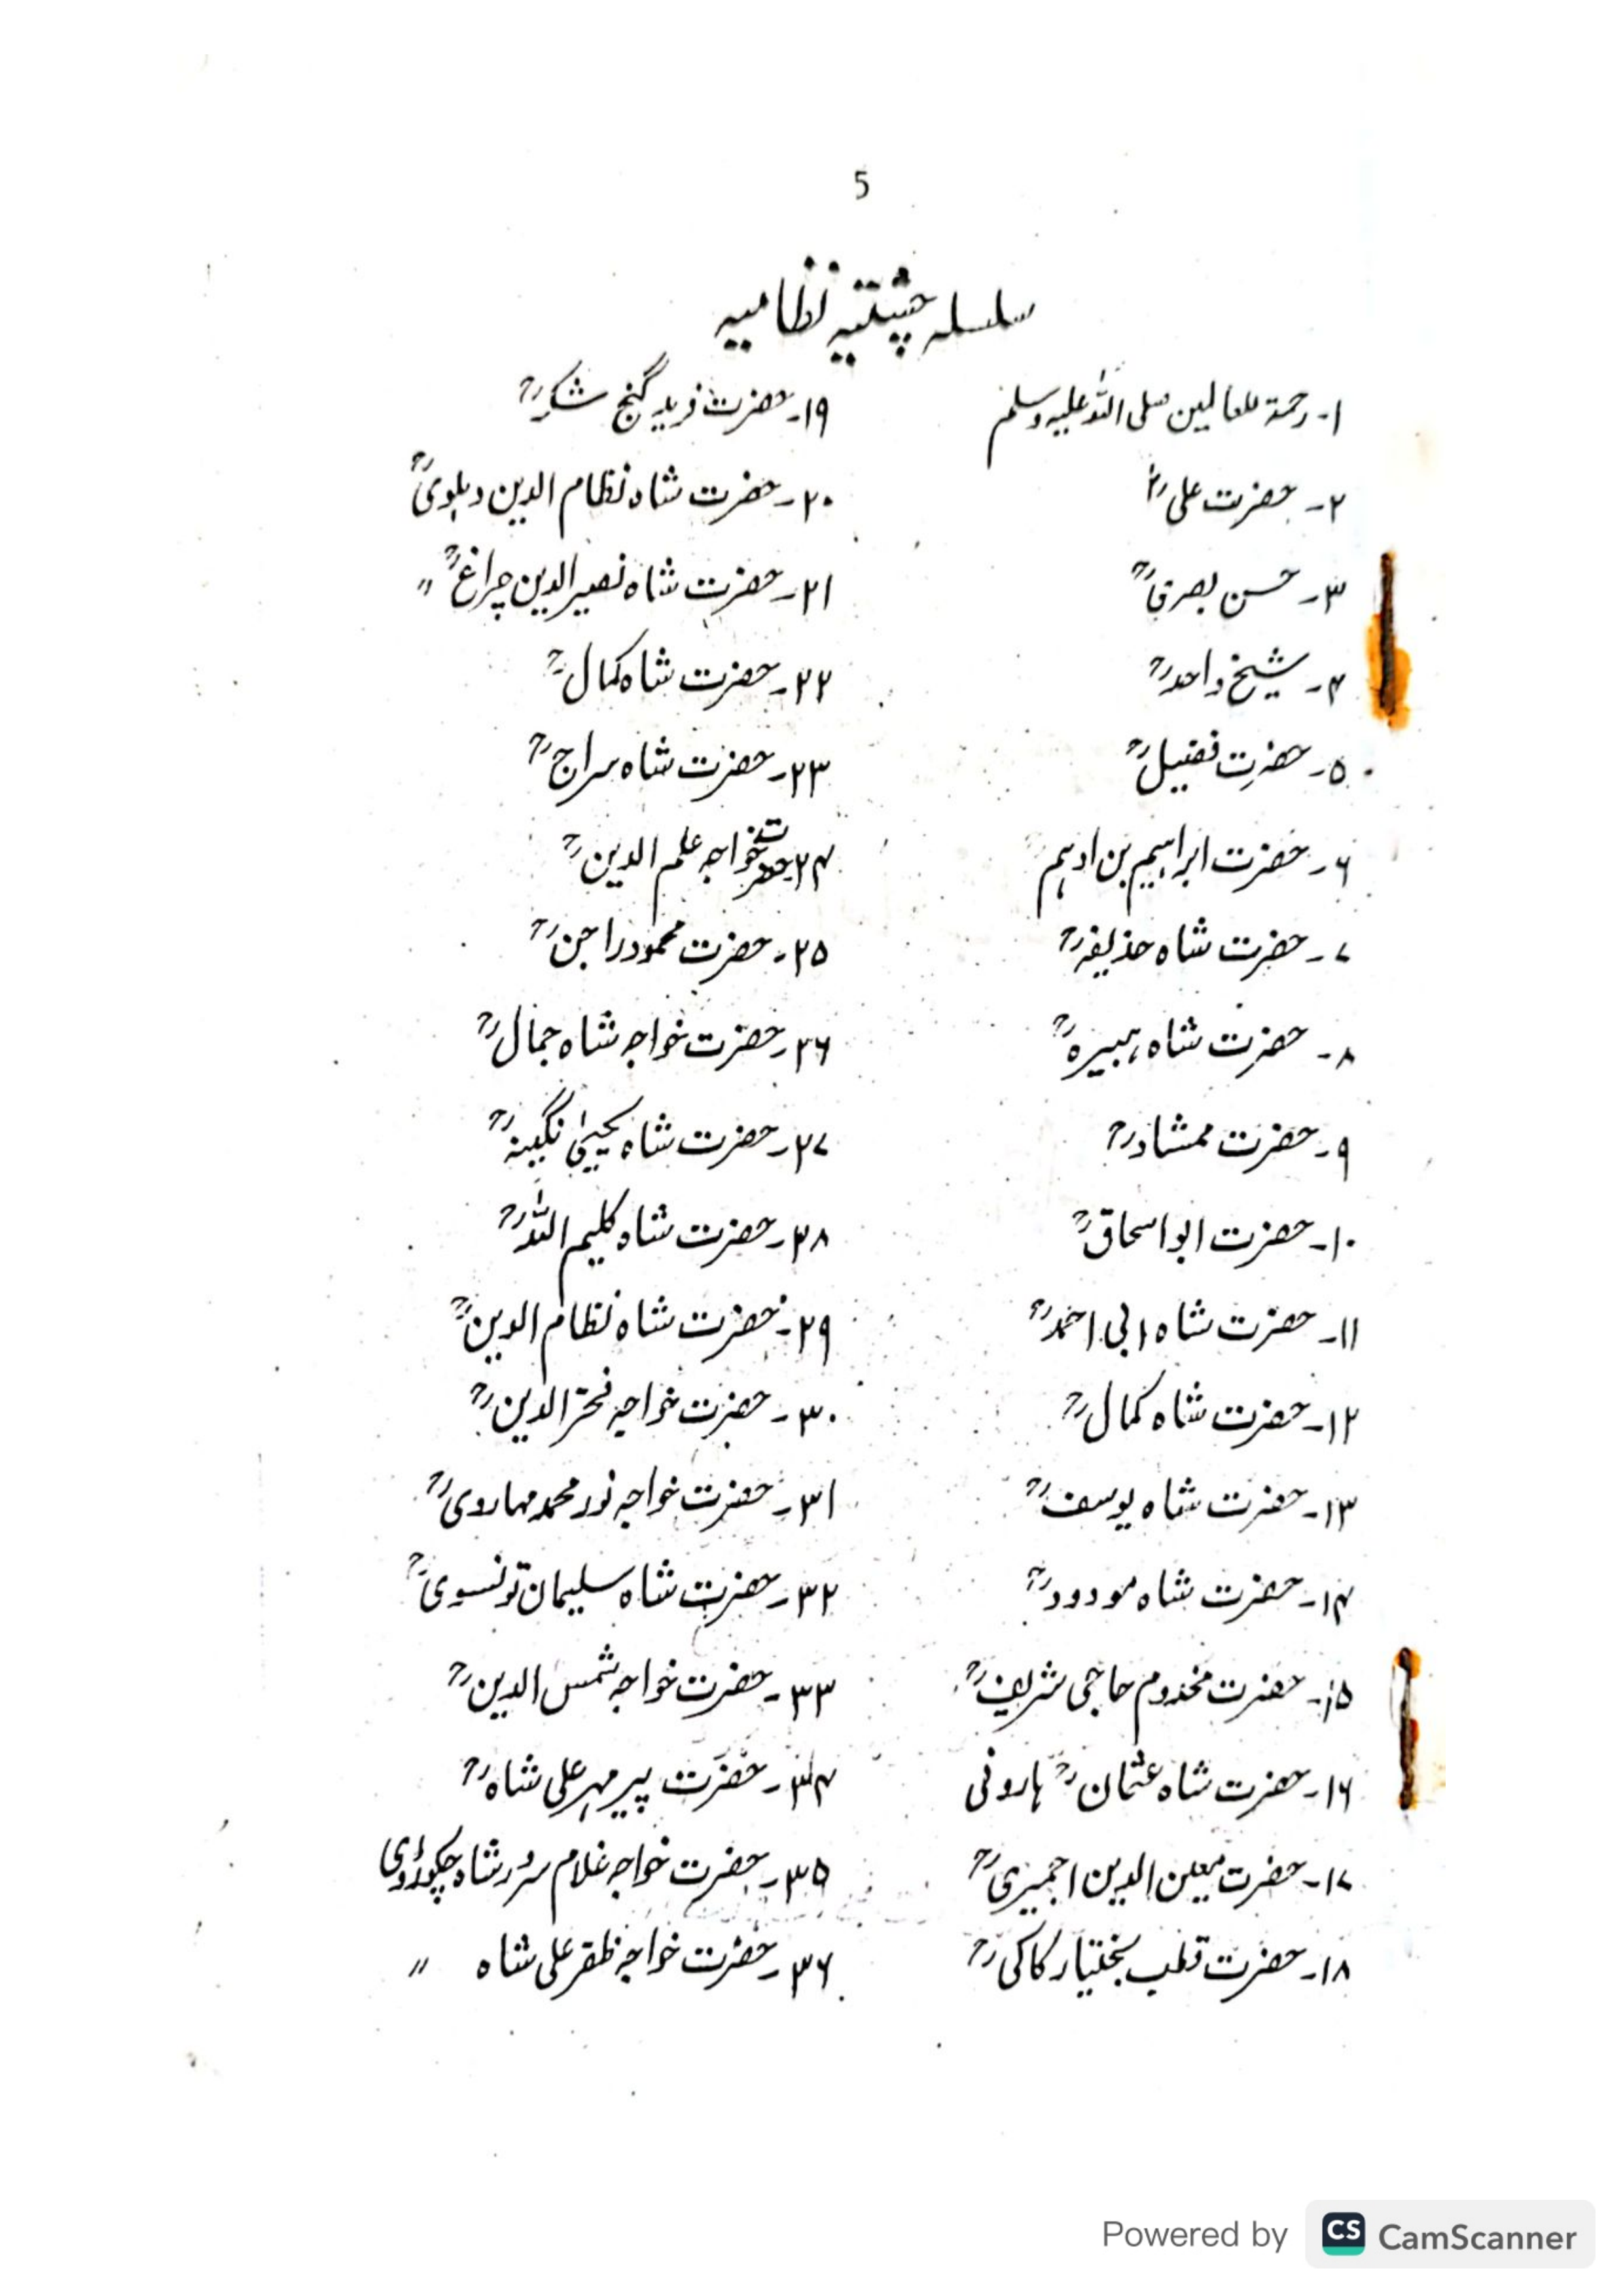 5
سلسلہ چشتیہ نظامیہ
۱۔ رحمۃ للعالمین صلی اللہ علیہ وسلم
۲۔ حضرت علیؓ
۳۔ حسن بصریؒ
۴۔ شیخ واحدؒ
۵۔ حضرت فضیلؒ
۶۔ حضرت ابراہیم بن ادہم
۷۔ حضرت شاہ حذیفہؒ
۸۔ حضرت شاہ ہبیرہؒ
۹۔ حضرت ممشادؒ
۱۰۔ حضرت ابو اسحاقؒ
۱۱۔ حضرت شاہ ابی احمدؒ
۱۲۔ حضرت شاہ کمالؒ
۱۳۔ حضرت شاہ یوسفؒ
۱۴۔ حضرت شاہ مودودؒ
۱۵۔ حضرت مخدوم حاجی شریفؒ
۱۶۔ حضرت شاہ عثمانؒ ہارونی
۱۷۔ حضرت معین الدین اجمیریؒ
۱۸۔ حضرت قطب بختیار کاکیؒ
۱۹۔ حضرت فرید گنج شکرؒ
۲۰۔ حضرت شاہ نظام الدین دہلویؒ
۲۱۔ حضرت شاہ نصیر الدین چراغؒ 〃
۲۲۔ حضرت شاہ کمالؒ
۲۳۔ حضرت شاہ سراجؒ
۲۴۔ حضرت خواجہ علم الدینؒ
۲۵۔ حضرت محمود راجنؒ
۲۶۔ حضرت خواجہ شاہ جمالؒ
۲۷۔ حضرت شاہ یحییٰ نگینہؒ
۲۸۔ حضرت شاہ کلیم اللہؒ
۲۹۔ حضرت شاہ نظام الدینؒ
۳۰۔ حضرت خواجہ فخر الدینؒ
۳۱۔ حضرت خواجہ نور محمد مہارویؒ
۳۲۔ حضرت شاہ سلیمان تونسویؒ
۳۳۔ حضرت خواجہ شمس الدینؒ
۳۴۔ حضرت پیر مہر علی شاہؒ
۳۵۔ حضرت خواجہ غلام سرور شاہ
۳۶۔ حضرت خواجہ ظفر علی شاہ 〃
Powered by CS CamScanner